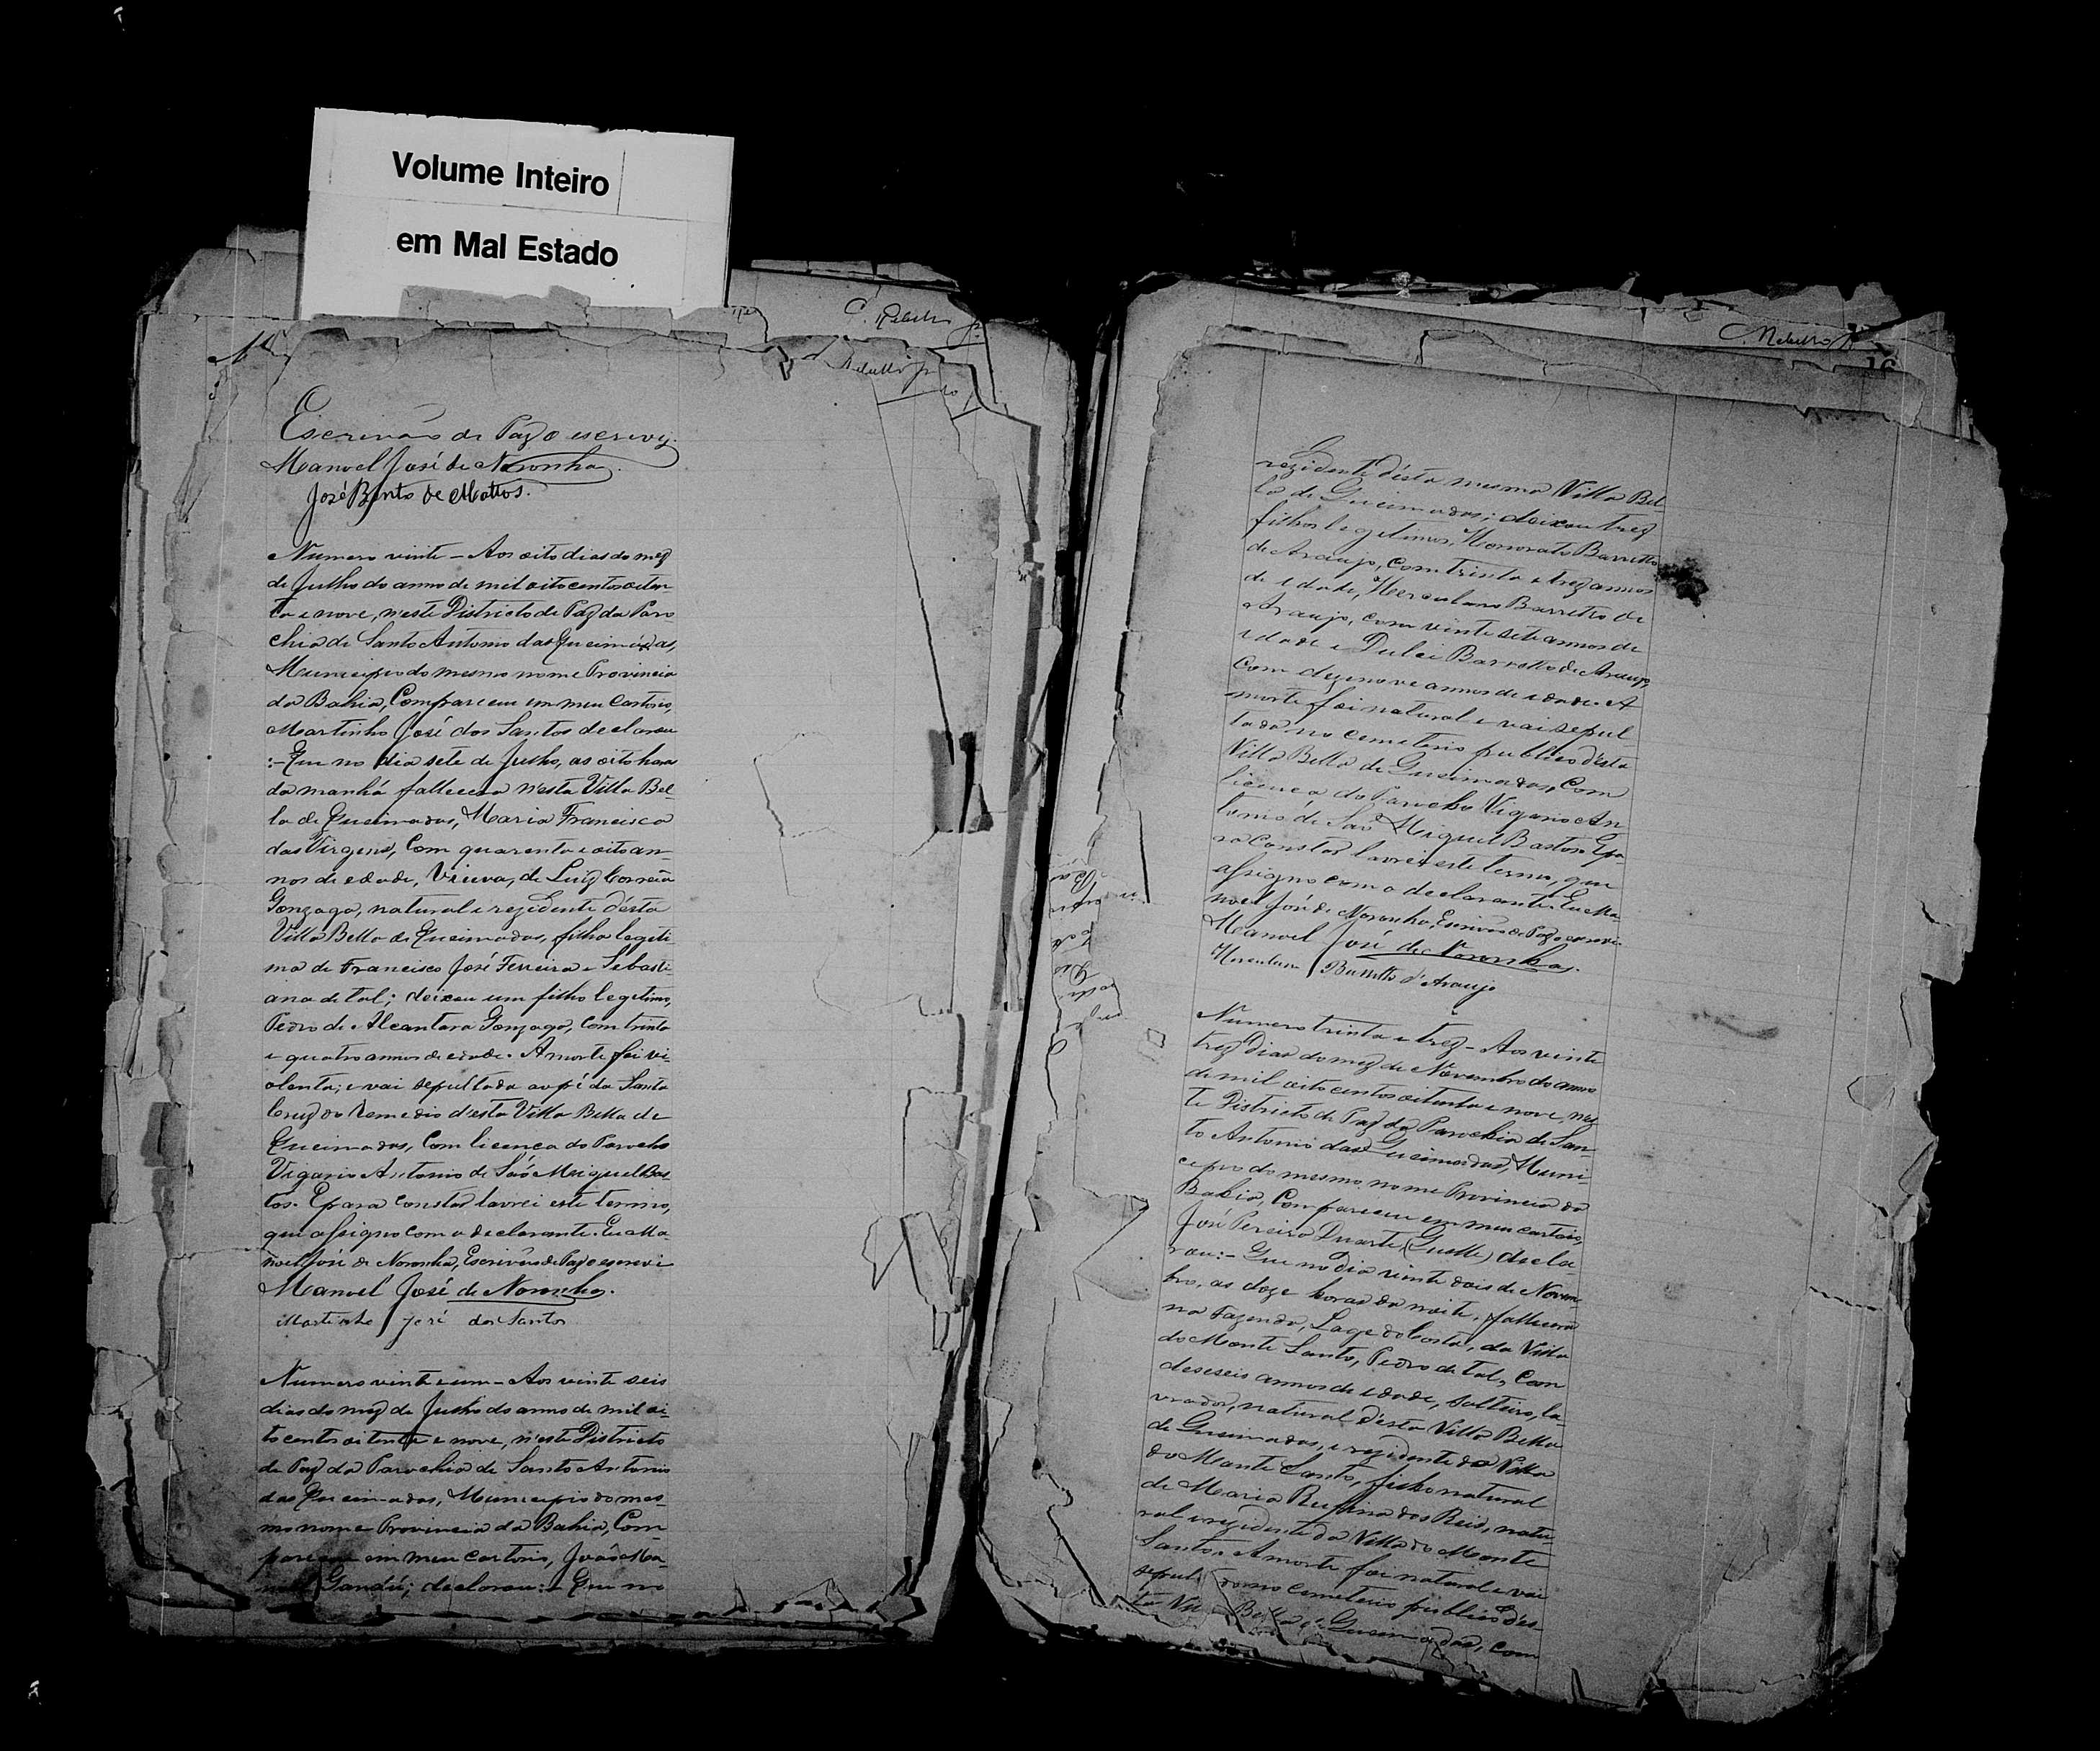 Volume Inteiro
em Mal Estado
C. Rebello Jr.
Rebello Jr.
Escrivão de Paz o escrevy.
Manoel José de Noronha.
José Bento de Mattos.
Numero vinte - Aos oito dias do mez
de Julho do anno de mil oitocentos oiten-
ta e nove, n'este Districto de Paz da Paro
chia de Santo Antonio das Queimadas,
Municipio do mesmo nome Provincia
da Bahia, Compareceu em meu Cartorio,
Martinho José dos Santos declarou
:- Que no dia sete de Julho, as oito horas
da manhã falleceu n'esta Villa Bel-
la de Queimadas, Maria Francisca
das Virgens, Com quarenta e oito an-
nos de edade, Viuva, de Luiz Correia
Gonzaga, natural e rezidente d'esta
Villa Bella de Queimadas, filha legiti-
ma de Francisco José Ferreira e Sebasti-
ana de tal; deixou um filho legitimo,
Pedro de Alcantara Gonzaga, com trinta
e quatro annos de edade. A morte foi vi-
olenta; e vai sepultada ao pé da Santa
Cruz do Remedio d'esta Villa Bella de
Queimadas, Com licença do Parocho
Vigario Antonio de São Miguel Bas-
tos. E para constar lavrei este termo,
que assigno com o declarante. Eu Ma-
noel José de Noronha, Escrivão de Paz o escrevi
Manoel José de Noronha.
Martinho José dos Santos
Numero vinte e um - Aos vinte seis
dias do mez de Julho do anno de mil oi-
tocentos oitenta e nove, n'este Districto
de Paz da Parochia de Santo Antonio
das Queimadas, Municipio do mes-
mo nome Provincia da Bahia, Com
pareceu em meu cartorio, João Ma-
noel Gandú; declarou: - Que no
C. Rebello Jr.
16
rezidente d'esta mesma Villa Bel-
la de Queimadas; deixou trez
filhos legitimos, Honorato Barretto
de Araujo, com trinta e trez annos
de edade, Herculano Barretto de
Araujo, com vinte sete annos de
edade e Dulci Barretto de Araujo,
com dezenove annos de edade. A
morte foi natural e vai sepul-
tada no cemeterio publico d'esta
Villa Bella de Queimadas, Com
licença do Parocho Vigario An-
tonio de São Miguel Bastos. E pa-
ra constar lavrei este termo, que
assigno com o declarante. Eu Ma-
noel José de Noronha, Escrivão de Paz o escrevi
Manoel José de Noronha.
Herculano Barretto d'Araujo
Numero trinta e trez - Aos vinte
trez dias do mez de Novembro do anno
de mil oitocentos oitenta e nove, nes
te Districto de Paz da Parochia de San-
to Antonio das Queimadas, Muni-
cipio do mesmo nome Provincia da
Bahia, Compareceu em meu cartorio,
José Pereira Duarte, declo-
rou: - Que no dia vinte dois de Novem-
bro, as doze horas da noite, falleceu
na Fazenda, Lage do Costa, da Villa
do Monte Santo, Pedro de tal, com
deseseis annos de edade, solteiro, la-
vrador, natural d'esta Villa Bella
de Queimadas, e rezidente da Villa
do Monte Santo, filho natural
de Maria Rufina dos Reis, natu-
ral e rezidente da Villa do Monte
Santo. A morte foi natural e vai
sepultado no cemeterio publico d'es-
ta Villa Bella de Queimadas, com